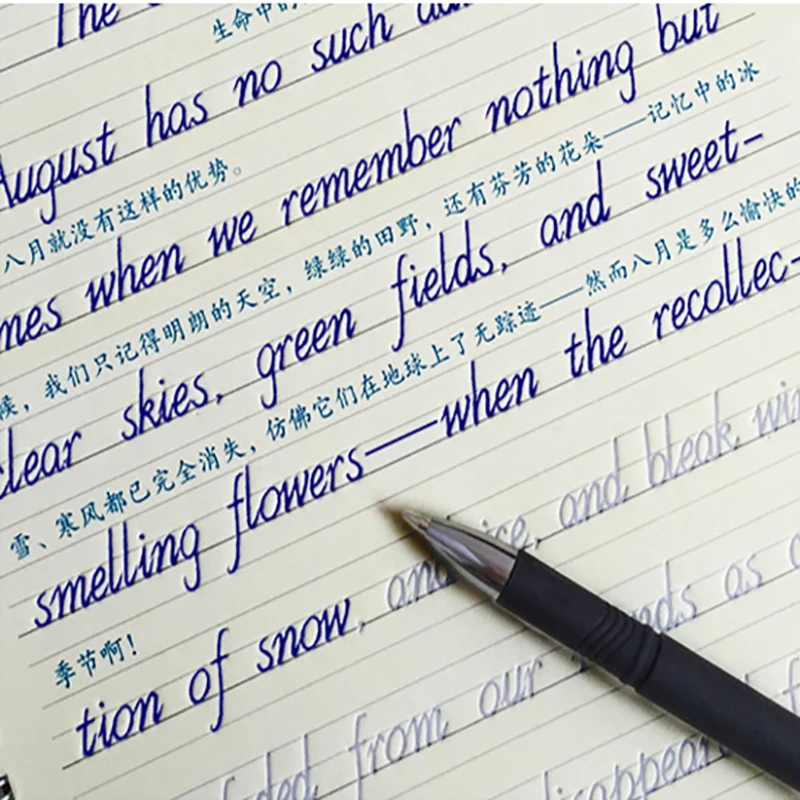 The
生命中的
August has no such
八月就没有这样的优势。
mes when we remember nothing but
候，我们只记得明朗的天空，绿绿的田野，还有芬芳的花朵——记忆中的冰
clear skies, green fields, and sweet-
雪、寒风都已完全消失，仿佛它们在地球上了无踪迹——然而八月是多么愉快的
smelling flowers—when the recollec-
季节啊！
tion of snow, and ice, and bleak
from our as